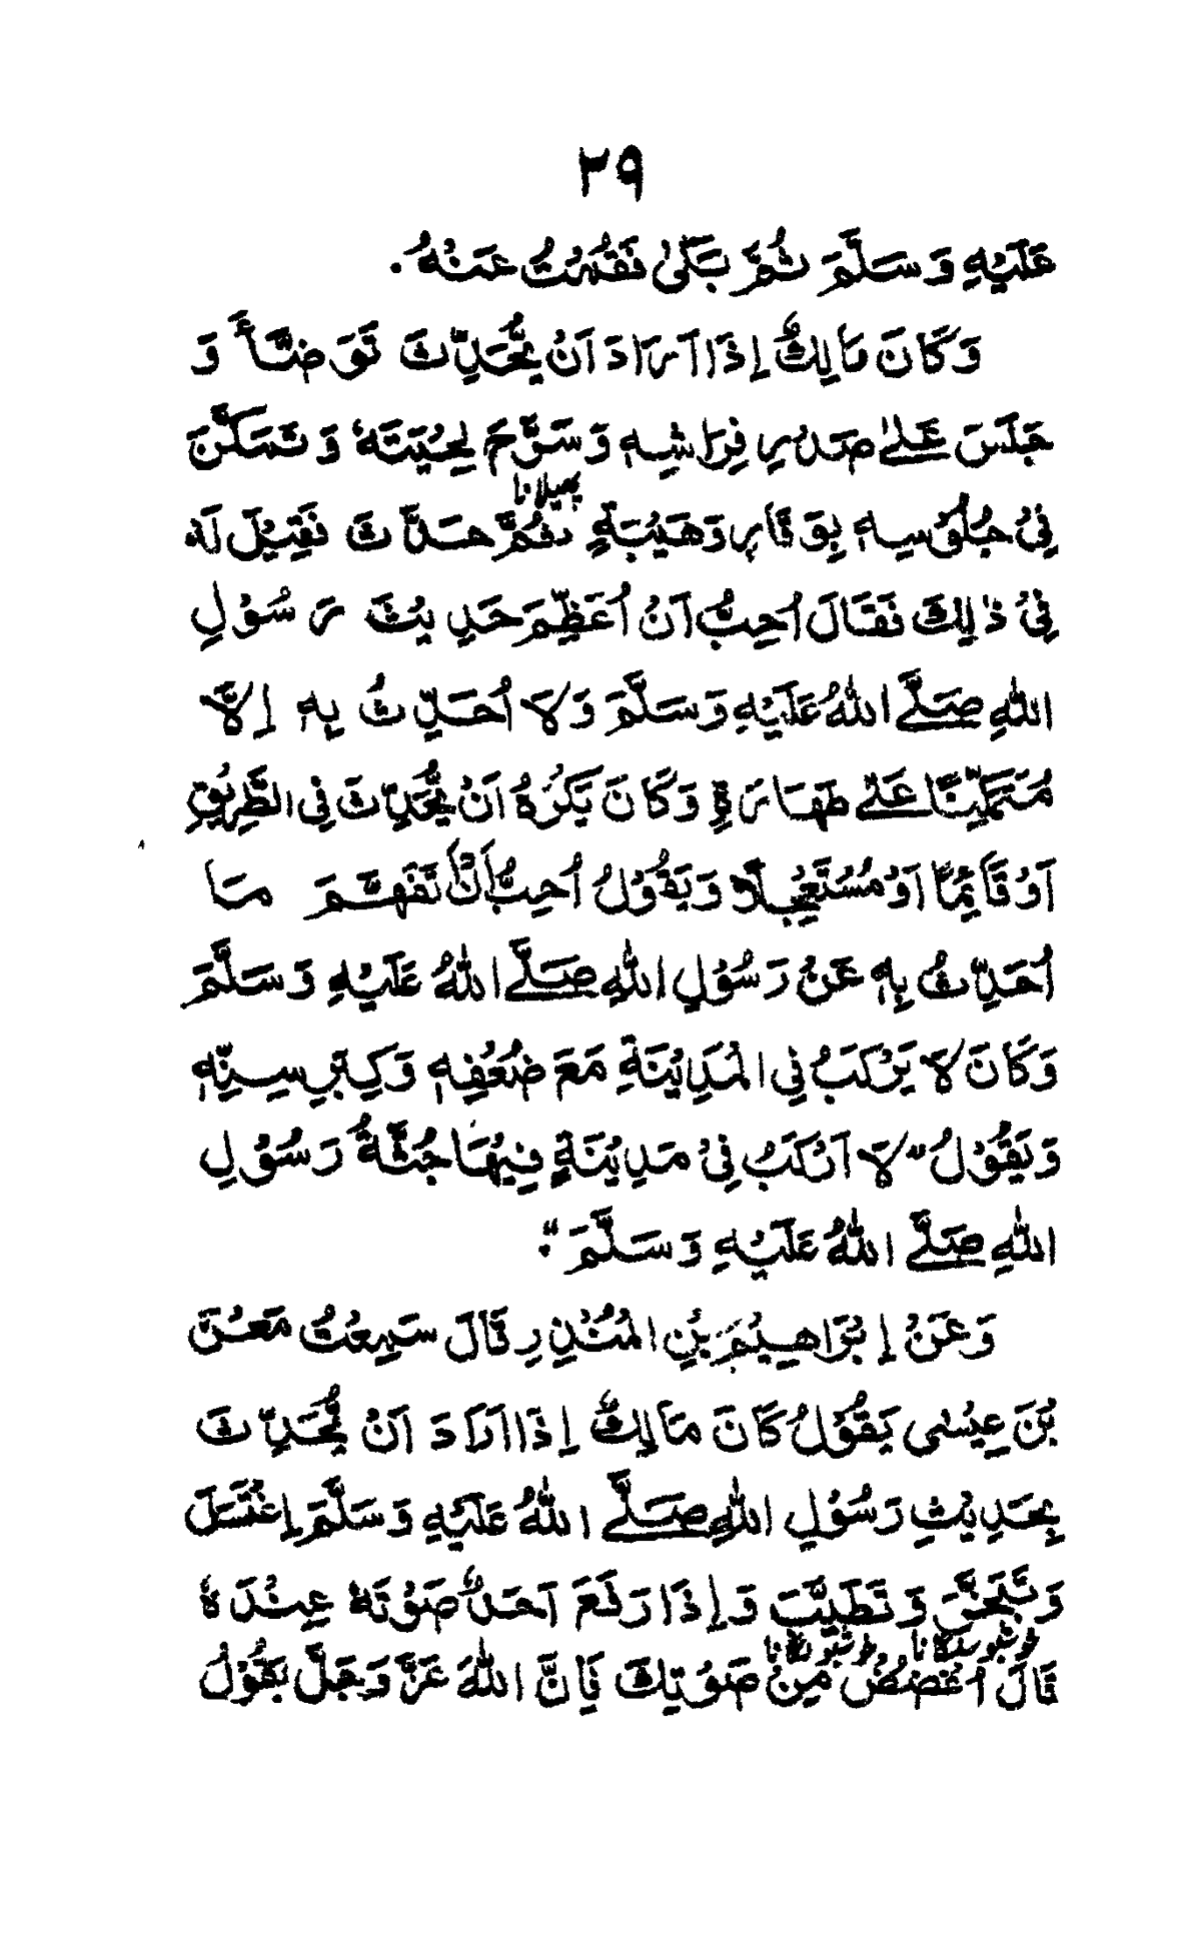 ۳۹
عَلَيْهِ وَسَلَّمَ ثُمَّ بَكٰى فَقُمْتُ عَنْهُ.
وَكَانَ مَالِكٌ إِذَا اَرَادَ اَنْ يُّحَدِّثَ تَوَضَّأَ وَ
جَلَسَ عَلٰى صَدْرِ فِرَاشِهٖ وَسَرَّحَ لِحْيَتَهٗ وَتَمَكَّنَ
پھیلانا
فِيْ جُلُوْسِهٖ بِوَقَارٍ وَهَيْبَةٍ ثُمَّ حَدَّثَ فَقِيْلَ لَهٗ
فِيْ ذٰلِكَ فَقَالَ اُحِبُّ اَنْ اُعَظِّمَ حَدِيْثَ رَسُوْلِ
اللهِ صَلَّے اللهُ عَلَيْهِ وَسَلَّمَ وَلَا اُحَدِّثُ بِهٖ اِلَّا
مُتَمَكِّنًا عَلٰى طَهَارَةٍ وَكَانَ يَكْرَهُ اَنْ يُّحَدِّثَ فِي الطَّرِيْقِ
اَوْ قَائِمًا اَوْ مُسْتَعْجِلًا وَيَقُوْلُ اُحِبُّ اَنْ تَفَهَّمَ مَا
اُحَدِّثُ بِهٖ عَنْ رَسُوْلِ اللهِ صَلَّے اللهُ عَلَيْهِ وَسَلَّمَ
وَكَانَ لَا يَرْكَبُ فِي الْمَدِيْنَةِ مَعَ ضُعْفِهٖ وَكِبَرِ سِنِّهٖ
وَيَقُوْلُ "لَا اَرْكَبُ فِيْ مَدِيْنَةٍ فِيْهَا جُثَّةُ رَسُوْلِ
اللهِ صَلَّے اللهُ عَلَيْهِ وَسَلَّمَ".
وَعَنْ إِبْرَاهِيْمَ بْنِ الْمُنْذِرِ قَالَ سَمِعْتُ مَعْنَ
بْنَ عِيْسٰى يَقُوْلُ كَانَ مَالِكٌ اِذَا اَرَادَ اَنْ يُّحَدِّثَ
بِحَدِيْثِ رَسُوْلِ اللهِ صَلَّے اللهُ عَلَيْهِ وَسَلَّمَ اِغْتَسَلَ
وَتَبَخَّرَ وَتَطَيَّبَ وَإِذَا رَفَعَ اَحَدٌ صَوْتَهٗ عِنْدَهٗ
خوشبو سلگانا خوشبو لگانا
قَالَ اُغْضُضْ مِنْ صَوْتِكَ فَاِنَّ اللهَ عَزَّ وَجَلَّ يَقُوْلُ